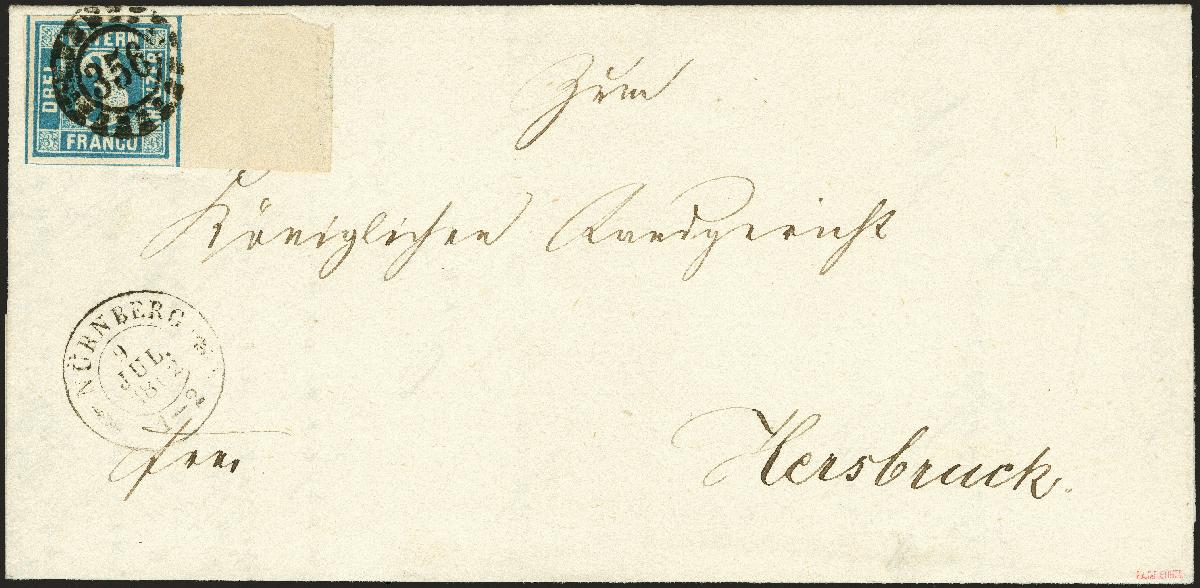 BAYERN
DREI
356
KREUZER
FRANCO
Zum
Königlichen Landgericht
NÜRNBERG
9
JUL.
Hersbruck.